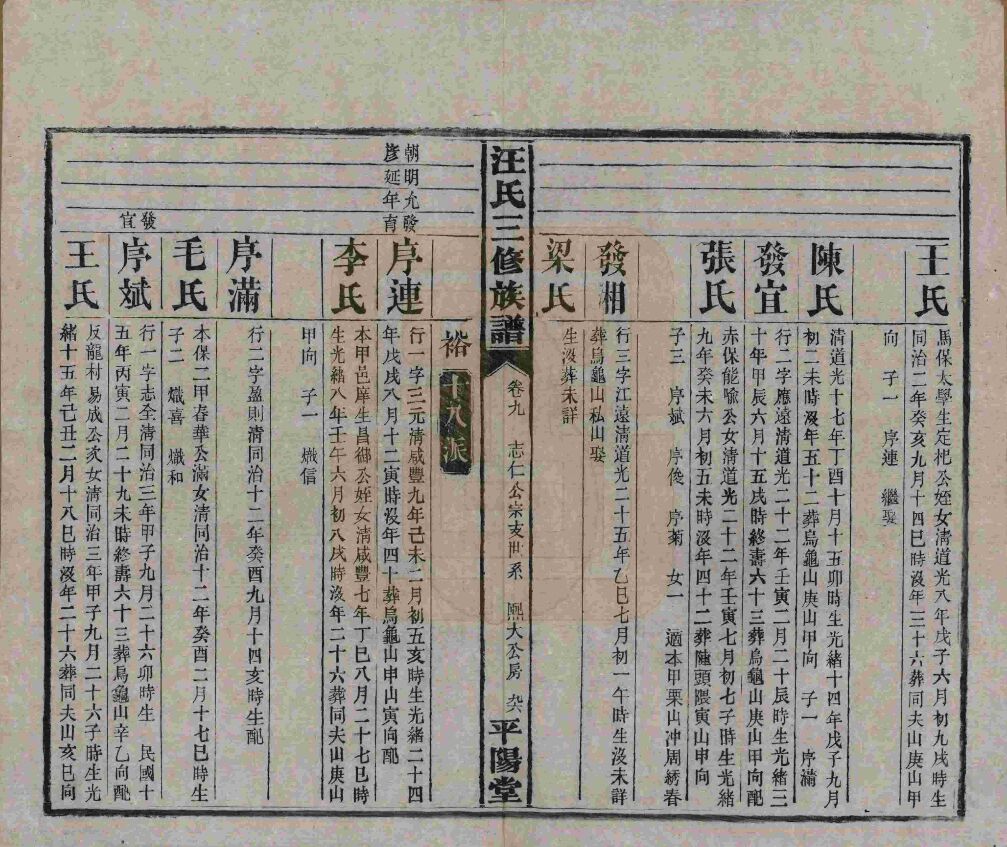 王氏
馬保太學生定祀公姪女清道光八年戊子六月初九戌時生
同治二年癸亥九月十四巳時沒年三十六葬同夫山庚山甲
向 子一 序連 繼娶
陳氏
清道光十七年丁酉十月十五卯時生光緒十四年戊子九月
初二未時沒年五十二葬烏龜山庚山甲向 子一 序滿
發宜
行二字應遠清道光二十二年壬寅二月二十辰時生光緒三
十年甲辰六月十五戌時終壽六十三葬烏龜山庚山甲向配
張氏
赤保能喩公女清道光二十二年壬寅七月初七子時生光緒
九年癸未六月初五未時沒年四十二葬陳頭隈寅山申向
子三 序斌 序俊 序菊 女一 適本甲栗山冲周綉春
發湘
行三字江遠清道光二十五年乙巳七月初一午時生沒未詳
葬烏龜山私山娶
梁氏
生沒葬未詳
汪氏三修族譜
卷九 志仁公宗支世系 熙大公房
平陽堂
裕十八派
朝明允發
彦延年育
序連
行一字三元清咸豐九年己未二月初五亥時生光緒二十四
年戊戌八月十二寅時沒年四十葬烏龜山申山寅向配
李氏
本甲邑庠生昌御公姪女清咸豐七年丁巳八月二十七巳時
生光緒八年壬午六月初八戌時沒年二十六葬同夫山庚山
甲向 子一 熾信
序滿
行二字盈則清同治十二年癸酉九月十四亥時生配
毛氏
本保二甲春華公滿女清同治十二年癸酉二月十七巳時生
子二 熾喜 熾和
發宜
序斌
行一字志全清同治三年甲子九月二十六卯時生 民國十
五年丙寅二月二十九未時終壽六十三葬烏龜山辛乙向配
王氏
反龍村易成公次女清同治三年甲子九月二十六子時生光
緒十五年己丑二月十八巳時沒年二十六葬同夫山亥巳向